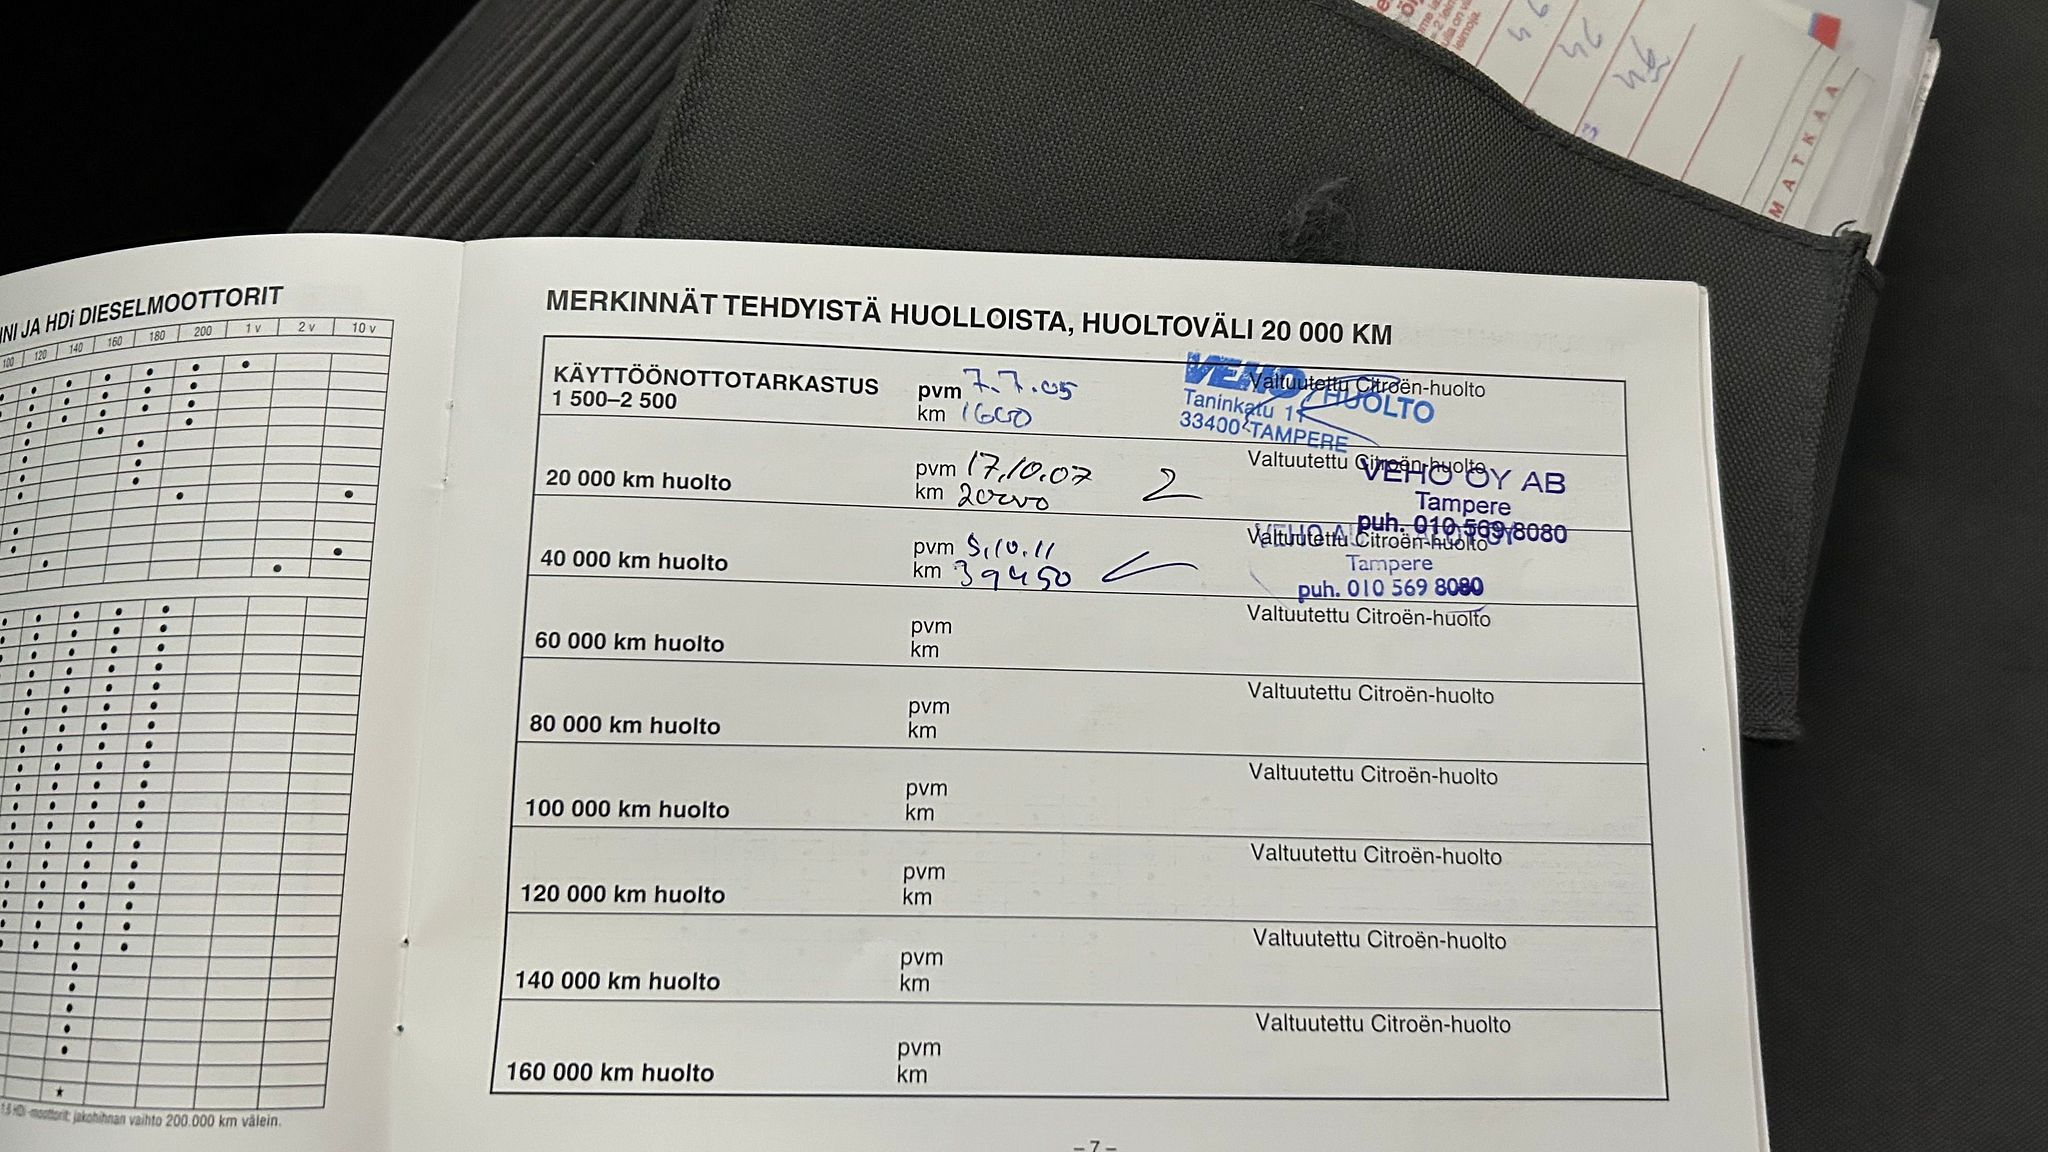 NI JA HDi DIESELMOOTTORIT
100 120 140 160 180 200 1 v 2 v 10 v
1.6 HDi -moottorit: jakohihnan vaihto 200.000 km välein.
MERKINNÄT TEHDYISTÄ HUOLLOISTA, HUOLTOVÄLI 20 000 KM
KÄYTTÖÖNOTTOTARKASTUS
1 500–2 500
pvm 7.7.05
km 1600
Valtuutettu Citroën-huolto
VEHO HUOLTO
Taninkatu 11
33400 TAMPERE
20 000 km huolto
pvm 17.10.07
km
Valtuutettu Citroën-huolto
VEHO OY AB
Tampere
puh. 010 569 8080
40 000 km huolto
pvm 5.10.11
km 39450
Valtuutettu Citroën-huolto
VEHO
Tampere
puh. 010 569 8080
60 000 km huolto
pvm
km
Valtuutettu Citroën-huolto
80 000 km huolto
pvm
km
Valtuutettu Citroën-huolto
100 000 km huolto
pvm
km
Valtuutettu Citroën-huolto
120 000 km huolto
pvm
km
Valtuutettu Citroën-huolto
140 000 km huolto
pvm
km
Valtuutettu Citroën-huolto
160 000 km huolto
pvm
km
Valtuutettu Citroën-huolto
– 7 –
MATKAA